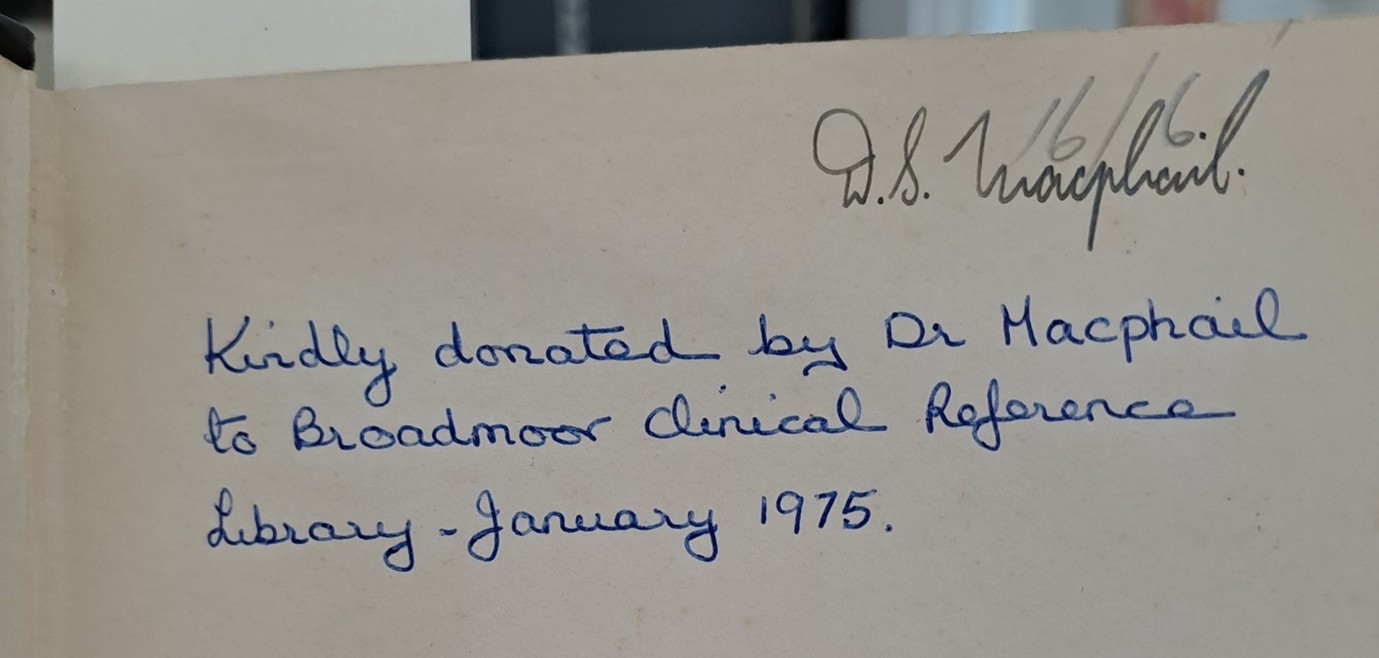 16/6.
D.S. Macphail.
Kindly donated by Dr Macphail
to Broadmoor Clinical Reference
Library - January 1975.